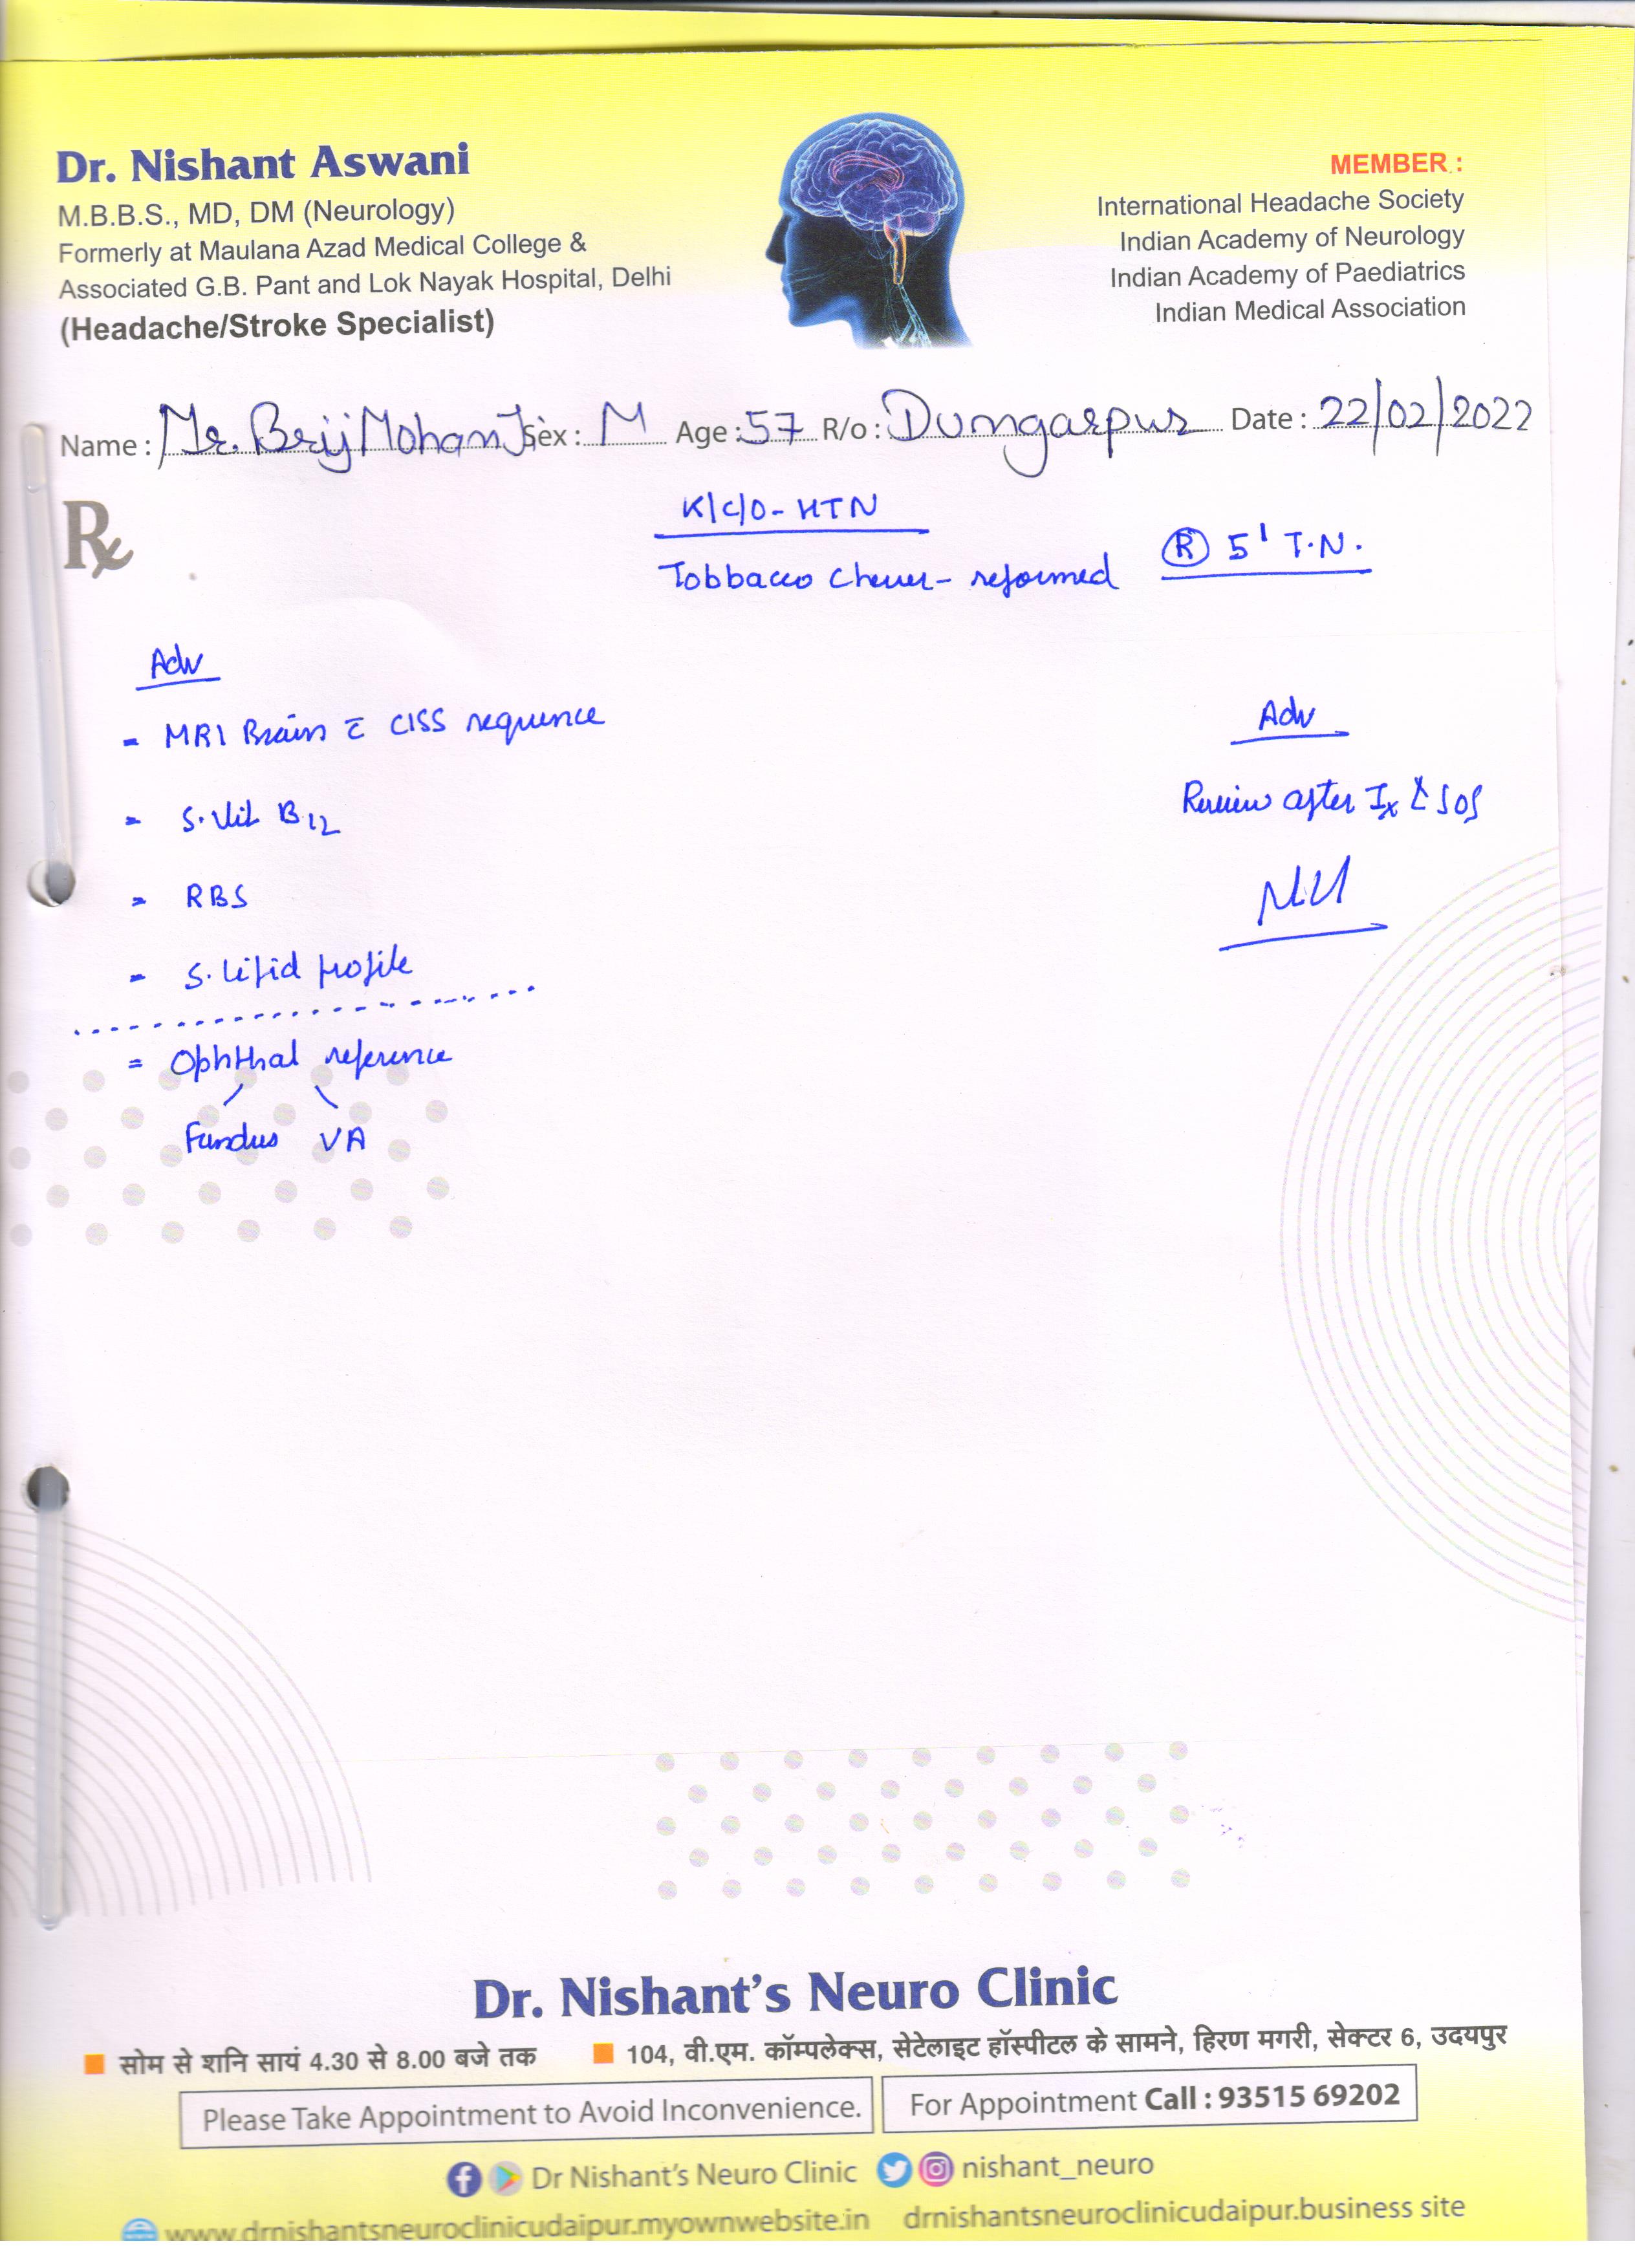 Dr. Nishant Aswani
M.B.B.S., MD, DM (Neurology)
Formerly at Maulana Azad Medical College &
Associated G.B. Pant and Lok Nayak Hospital, Delhi
(Headache/Stroke Specialist)
MEMBER :
International Headache Society
Indian Academy of Neurology
Indian Academy of Paediatrics
Indian Medical Association
Name : Mr. Brij Mohan J Sex : M Age : 57 R/o : Dungarpur Date : 22/02/2022
Rx
K/C/O - HTN
Tobbacco Chewer - reformed
Ⓡ 5' T.N.
Adv
- MRI Brain c̄ CISS sequence
- S. Vit B12
- RBS
- S. Lipid profile
= Ophthal reference
Fundus VA
Adv
Review after Ix & SOS
Dr. Nishant's Neuro Clinic
सोम से शनि सायं 4.30 से 8.00 बजे तक
104, वी.एम. कॉम्पलेक्स, सेटेलाइट हॉस्पीटल के सामने, हिरण मगरी, सेक्टर 6, उदयपुर
Please Take Appointment to Avoid Inconvenience.
For Appointment Call : 93515 69202
Dr Nishant's Neuro Clinic nishant_neuro
www.drnishantsneuroclinicudaipur.myownwebsite.in drnishantsneuroclinicudaipur.business site